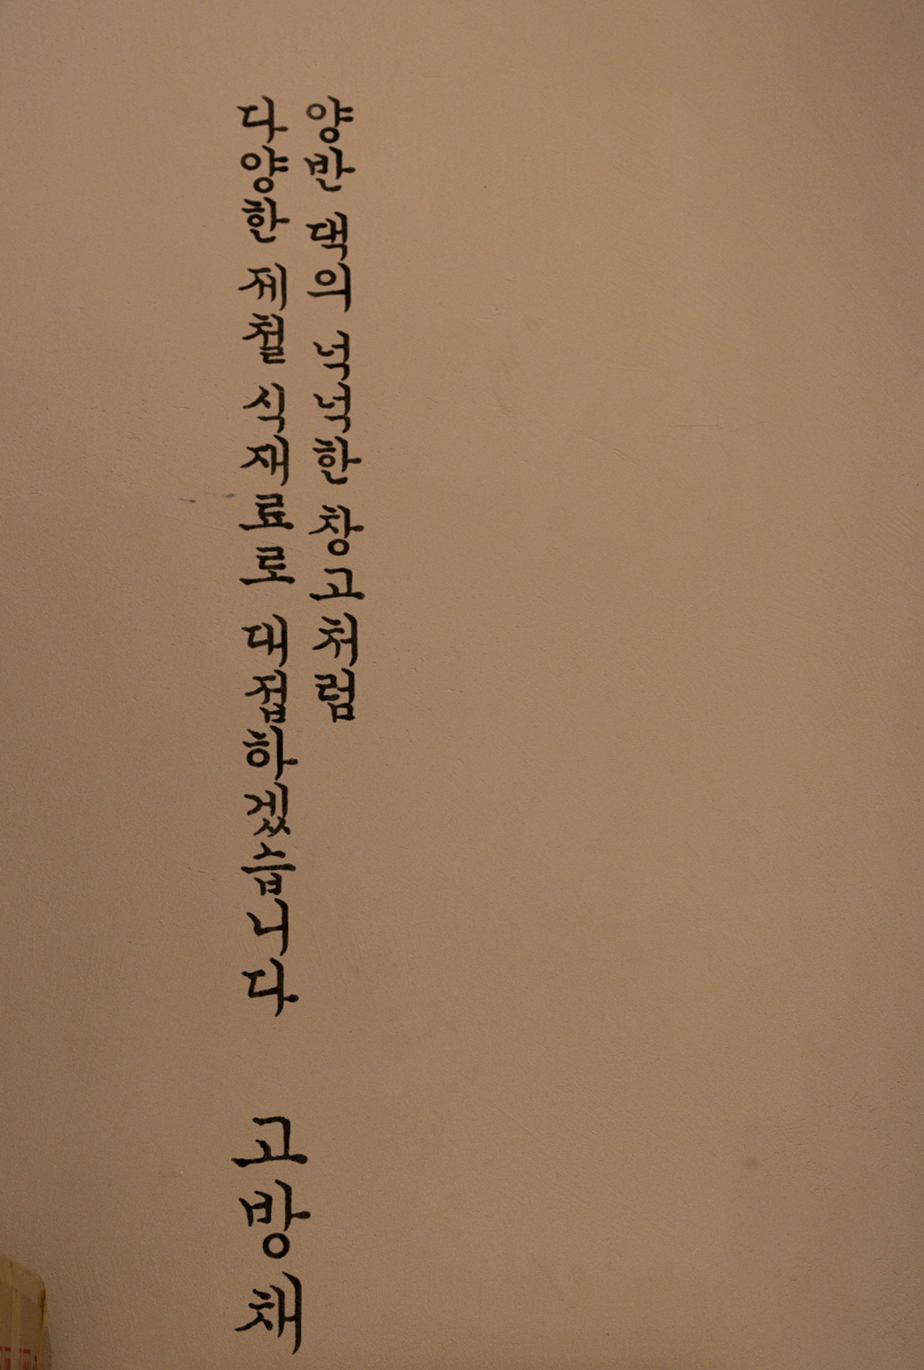 양반 댁의 넉넉한 창고처럼
다양한 제철 식재료로 대접하겠습니다
고방채